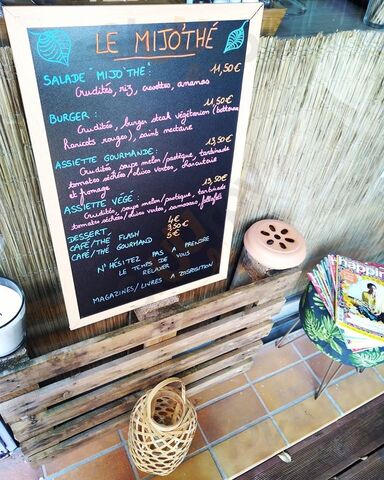 LE MIJO'THÉ
SALADE "MIJO'THÉ":
11,50€
Crudités, riz, crevettes, ananas
BURGER:
11,50€
Crudités, burger steak végétarien (betterave
haricots rouges), saint nectaire
ASSIETTE GOURMANDE:
13,50€
Crudités, soupe melon/pastèque, tartinade
tomates séchées/olives vertes, charcuterie
et fromage
ASSIETTE VÉGÉ:
13,50€
Crudités, soupe melon/pastèque, tartinade
tomates séchées/olives vertes, samoussa, falafels
DESSERT, 4€
CAFÉ/THÉ FLASH 3,50€
CAFÉ/THÉ GOURMAND 5€
N'HÉSITEZ PAS A PRENDRE
LE TEMPS DE VOUS
RELAXER
MAGAZINES/LIVRES A DISPOSITION
happinez